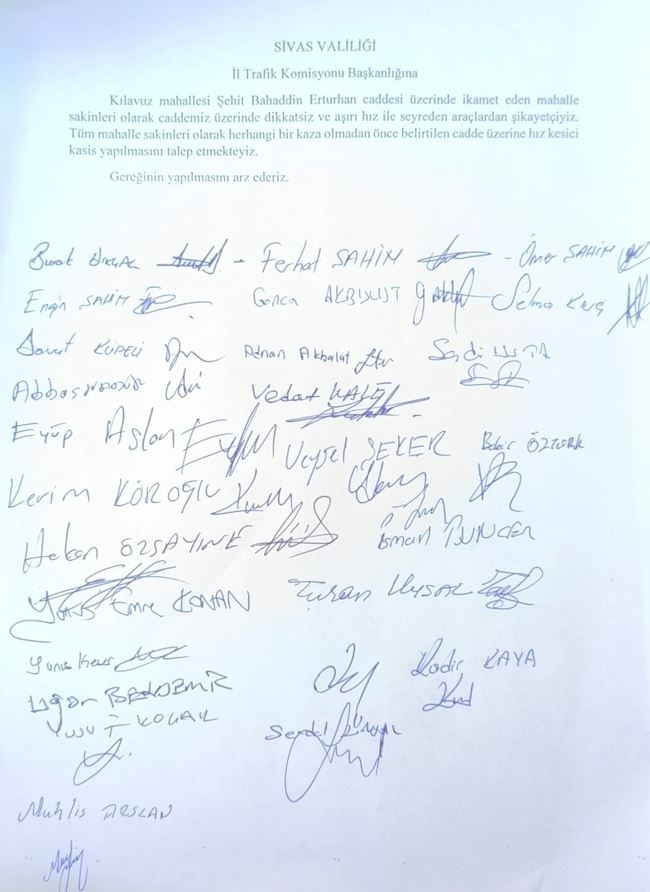 SİVAS VALİLİĞİ
İl Trafik Komisyonu Başkanlığına
Kılavuz mahallesi Şehit Bahaddin Erturhan caddesi üzerinde ikamet eden mahalle
sakinleri olarak caddemiz üzerinde dikkatsiz ve aşırı hız ile seyreden araçlardan şikayetçiyiz.
Tüm mahalle sakinleri olarak herhangi bir kaza olmadan önce belirtilen cadde üzerine hız kesici
kasis yapılmasını talep etmekteyiz.
Gereğinin yapılmasını arz ederiz.
Burak - Ferhat ŞAHİN - Ömer ŞAHİN
Engin ŞAHİN Gonca AKBULUT Selma
KÜPELİ Adnan Akbulut Sadi USTA
Abbas Vedat
Eyüp Aslan Veysel ŞEKER Bekir ÖZTÜRK
Kerim KÖROĞLU
Hakan İsmail TUNCER
Yunus Emre KONAN Turan UYSAL
Yunus Kadir KAYA
Uğur BEKDEMİR
Yusuf KOÇAK Serdal
Muhlis ARSLAN